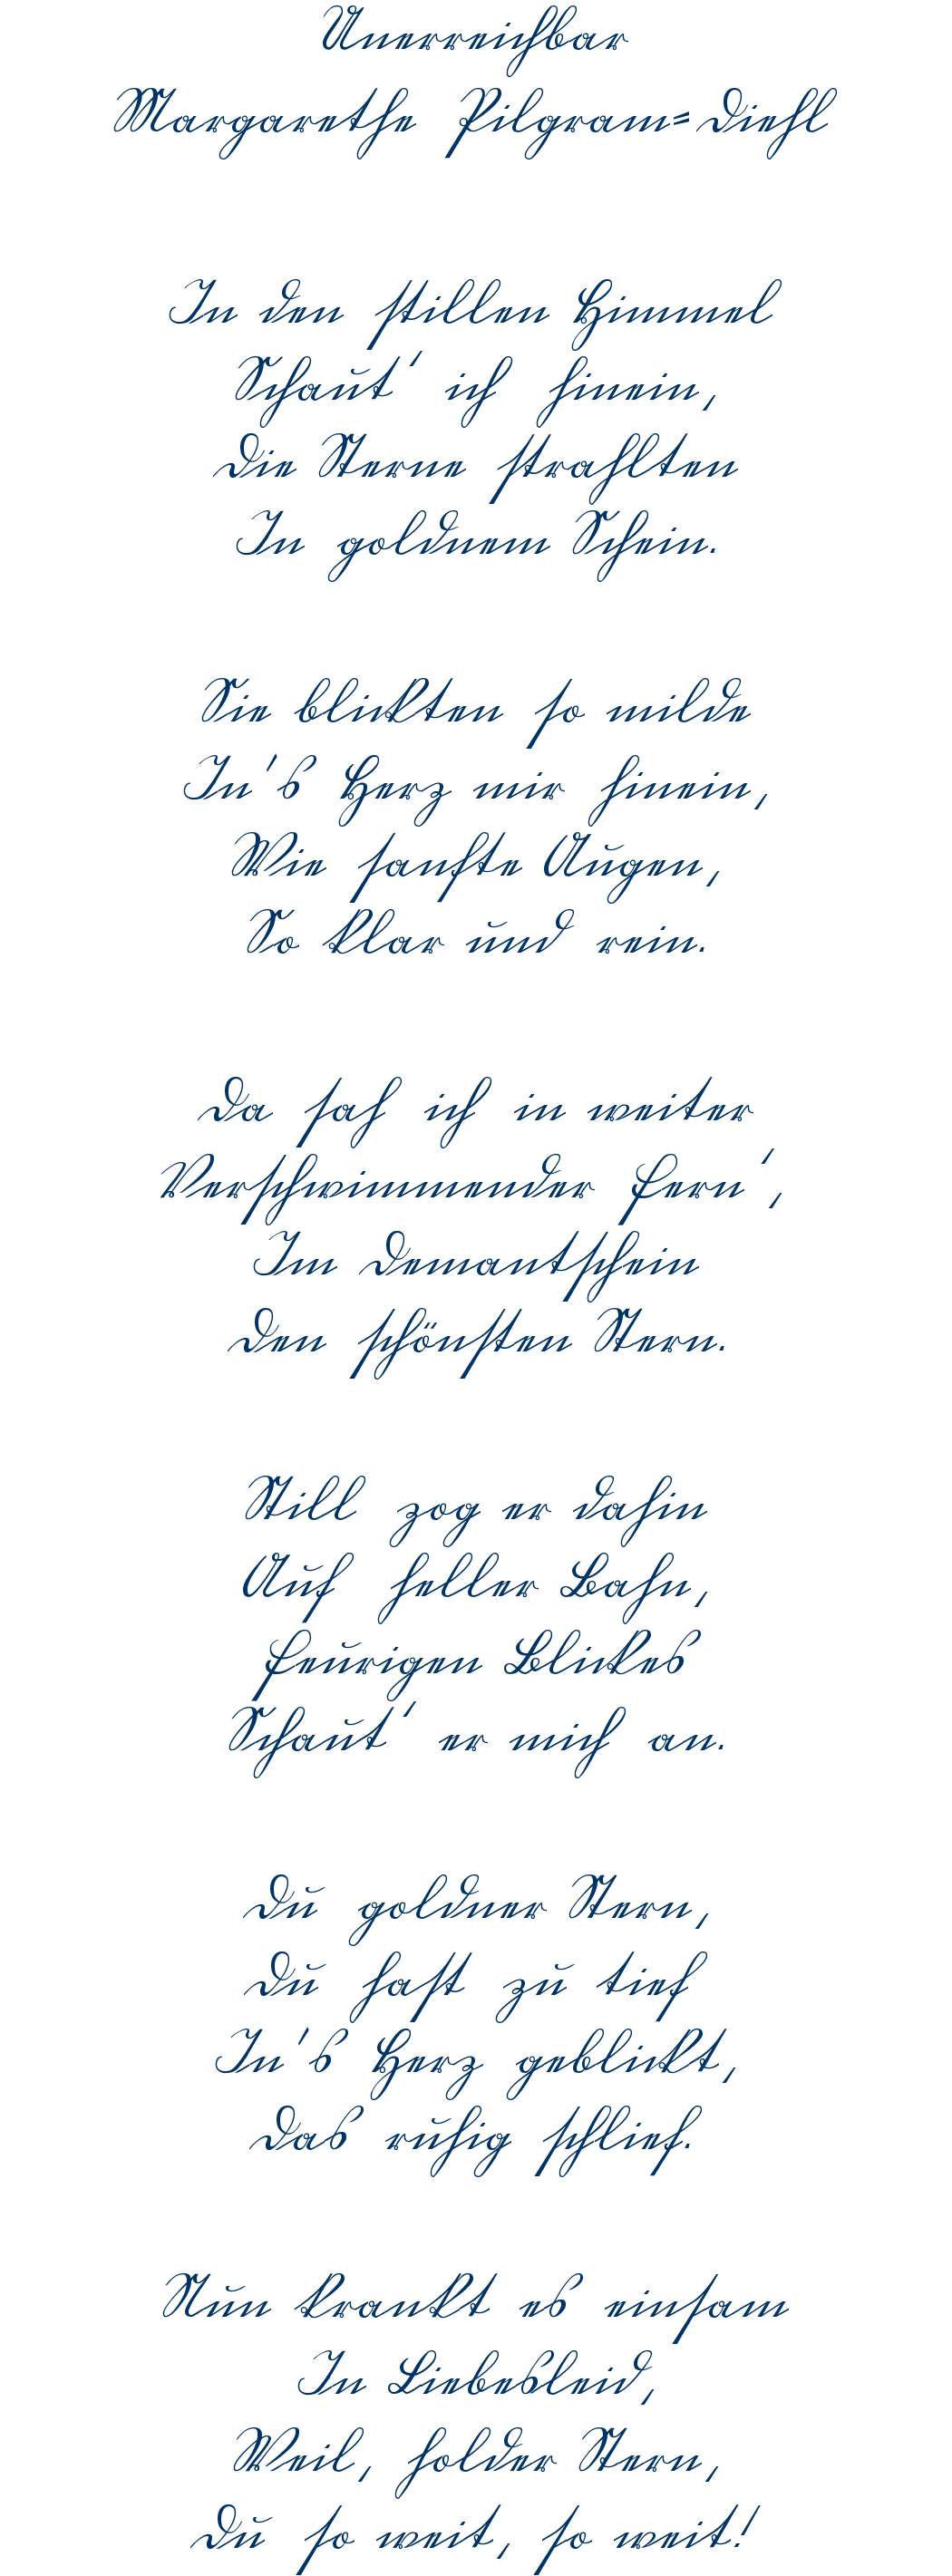 Unerreichbar
Margarethe Pilgram-Diehl
In den stillen Himmel
Schaut' ich hinein,
Die Sterne strahlten
In goldnem Schein.
Sie blickten so milde
In's Herz mir hinein,
Wie sanfte Augen,
So klar und rein.
Da sah ich in weiter
Verschwimmender Fern',
Im Demantschein
Den schönsten Stern.
Still zog er dahin
Auf heller Bahn,
Feurigen Blickes
Schaut' er mich an.
Du goldner Stern,
Du hast zu tief
In's Herz geblickt,
Das ruhig schlief.
Nun krankt es einsam
In Liebesleid,
Weil, holder Stern,
Du so weit, so weit!